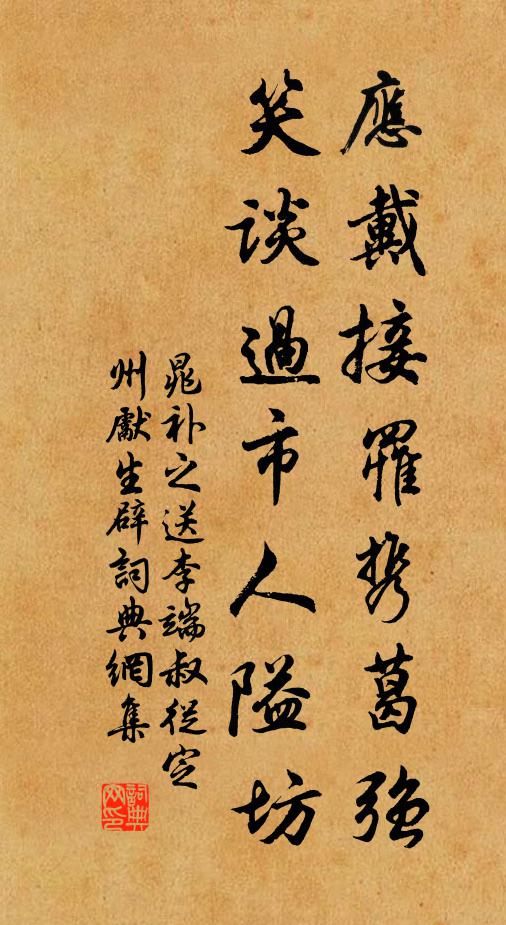 應戴接罹携葛強
笑談過市人隘坊
晁補之送李端叔從定
州獻生辟詞典網集
詞典網印